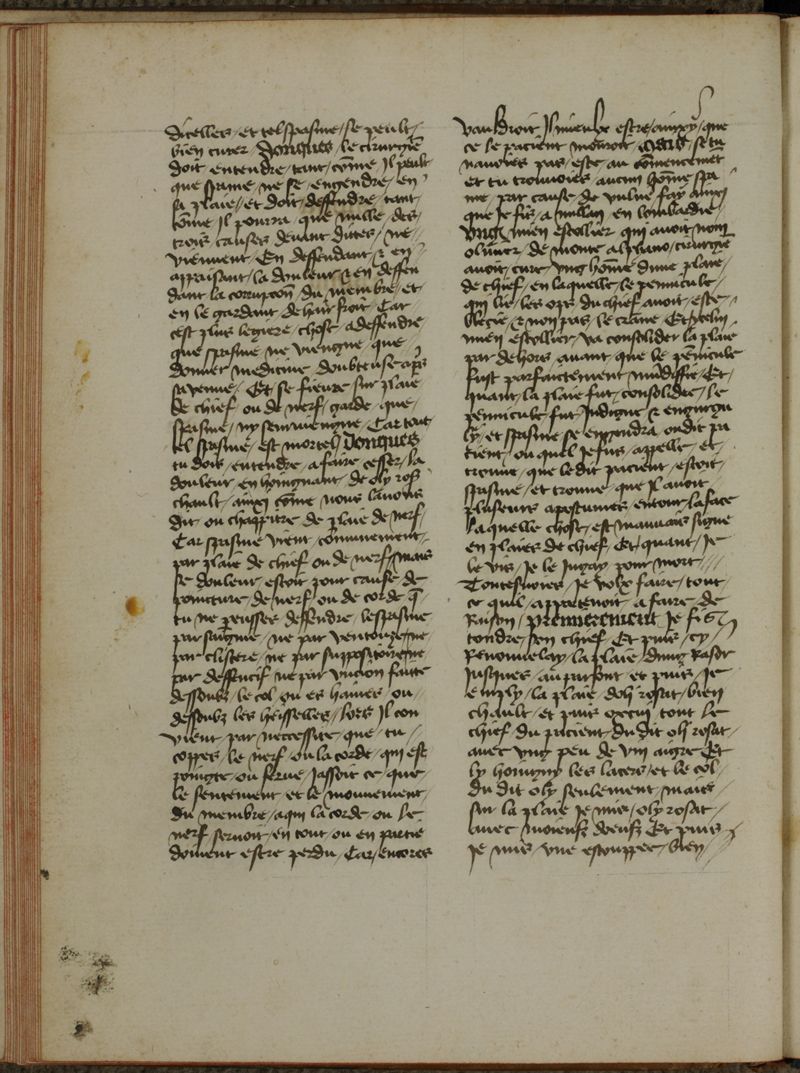 dicelles / et tel spasme / se peult /
bien curer / Doncques / le cirurgiē
doit entendre / tant / cōme Il peult
que spasme / ne se / engendre / en
sa plaie / et doit / deffendre / tant
cōme Il pourra / que nulle / des /
trois causes devant dittes / ne /
viennent / En deffendant / & en /
appaisant / la douleur / & en deffen
dant la corrupcoñ / du membre / et
en le gardant / de hair froit / Car
cest plus legiere / chose / a deffendre
que spasme / ne viengne / que /
donner medicine / doubteuse ap̄s
sa venue / Et se fieure / sur plaie
de chief / ou de nerf / garde / que /
spasme / ny seurviengne / Car tout
tel spasme / est mortel / Doncques
tu dois / entendre / a faire / cesser / la
douleur / en hoingnant / de oly ros̄
chault / ainxi cōme / nous lavons
dit / ou chappitre / de plaie de nerf /
Car spasme / vient / cōmunement /
par plaie de chief / ou de nerf / mais
se douleur / estoit / pour cause / de
poincture / de nerf / ou de corde / q̄
tu / ne peusses / deffendre / lespasme
par saignie / ne par ventouze / ne
par clistere / ne par suppositoire / ne
par deffencif / ne par / vncion faitte
dessoubz / le col / ou es / haines / ou /
dessoubz les / heisselles / lors / Il con
vient / par / neccessite / que / tu /
coppes / le nerf / ou la corde / qui est
pointe / ou ferue / Jassoit ce / que
le sentement / et le mouuement /
du membre / a qui la corde / ou le
nerf / servoit / en tout / ou en partie
doivent / estre perdu / Car / encores
vauldroit / Il mieulx / estre / ainxy / que
ce le pacient / mouroit / Mais / se tu
navoies / pas / este / au cōmencemēt
et tu trouvoies / aucun hōme / spa
me / par cause / de / vulne / fay ainxi
que Je fis / a millan / en lombardie /
Vng / mien / escollier / qui avoit / nom
olivier / de monte / alplano / cirurgiē
avoit / cure / vng hōme / dune / plaie /
de chief / en laquelle / le pennicule /
qui lie / les ops / du chief / avoit / este /
blecie / & non pas / le crane / Et ycelui /
mien / escollier / va consolider / la plaie
par dehors / avant / que le / pēnicule
fust / parfaictement / mūdiffie / Et /
quant / la plaie / fut / consolidee / le
pennicule / fut / Indigne / &
ly / et spasme / se engendra / oudit pa
cient / ou quel / Je fus / appelle / et /
trouvai / que / ledit / pacient / estoit /
spasme / et trouve / que / Il / avoit /
plusieurs / apostumes / entour / la face
laquelle / chose / est / mauvais / signe
en plaies / de chief / Et / quant / Je
le vis / Je le Jugay / pour mort ///
Toutesvoies / Je volz / faire / tout /
ce / quil / appartenoit / a faire / de
Raison / Premierement / Je / fis
tondre / son / chief / Et / puis / cy /
Renouvelay / la plaie / dung / Rasor
Jusques / au parfont / et / puis / Je
emply / la plaie / doly / rosat / bien
chault / et / puis / / tout / le
chief / du / pacient / du dit / oly / rosat /
avec / vng / peu / de / vin / aigre / Et
ly / hoingny / les / lacers / et / le col /
du dit / oly / seulement / mais /
sur / la plaie / Je mis / oly rosat /
avec / moieufz / doeufz / Et / puis /
Je / mis / vne / estouppee / bien /